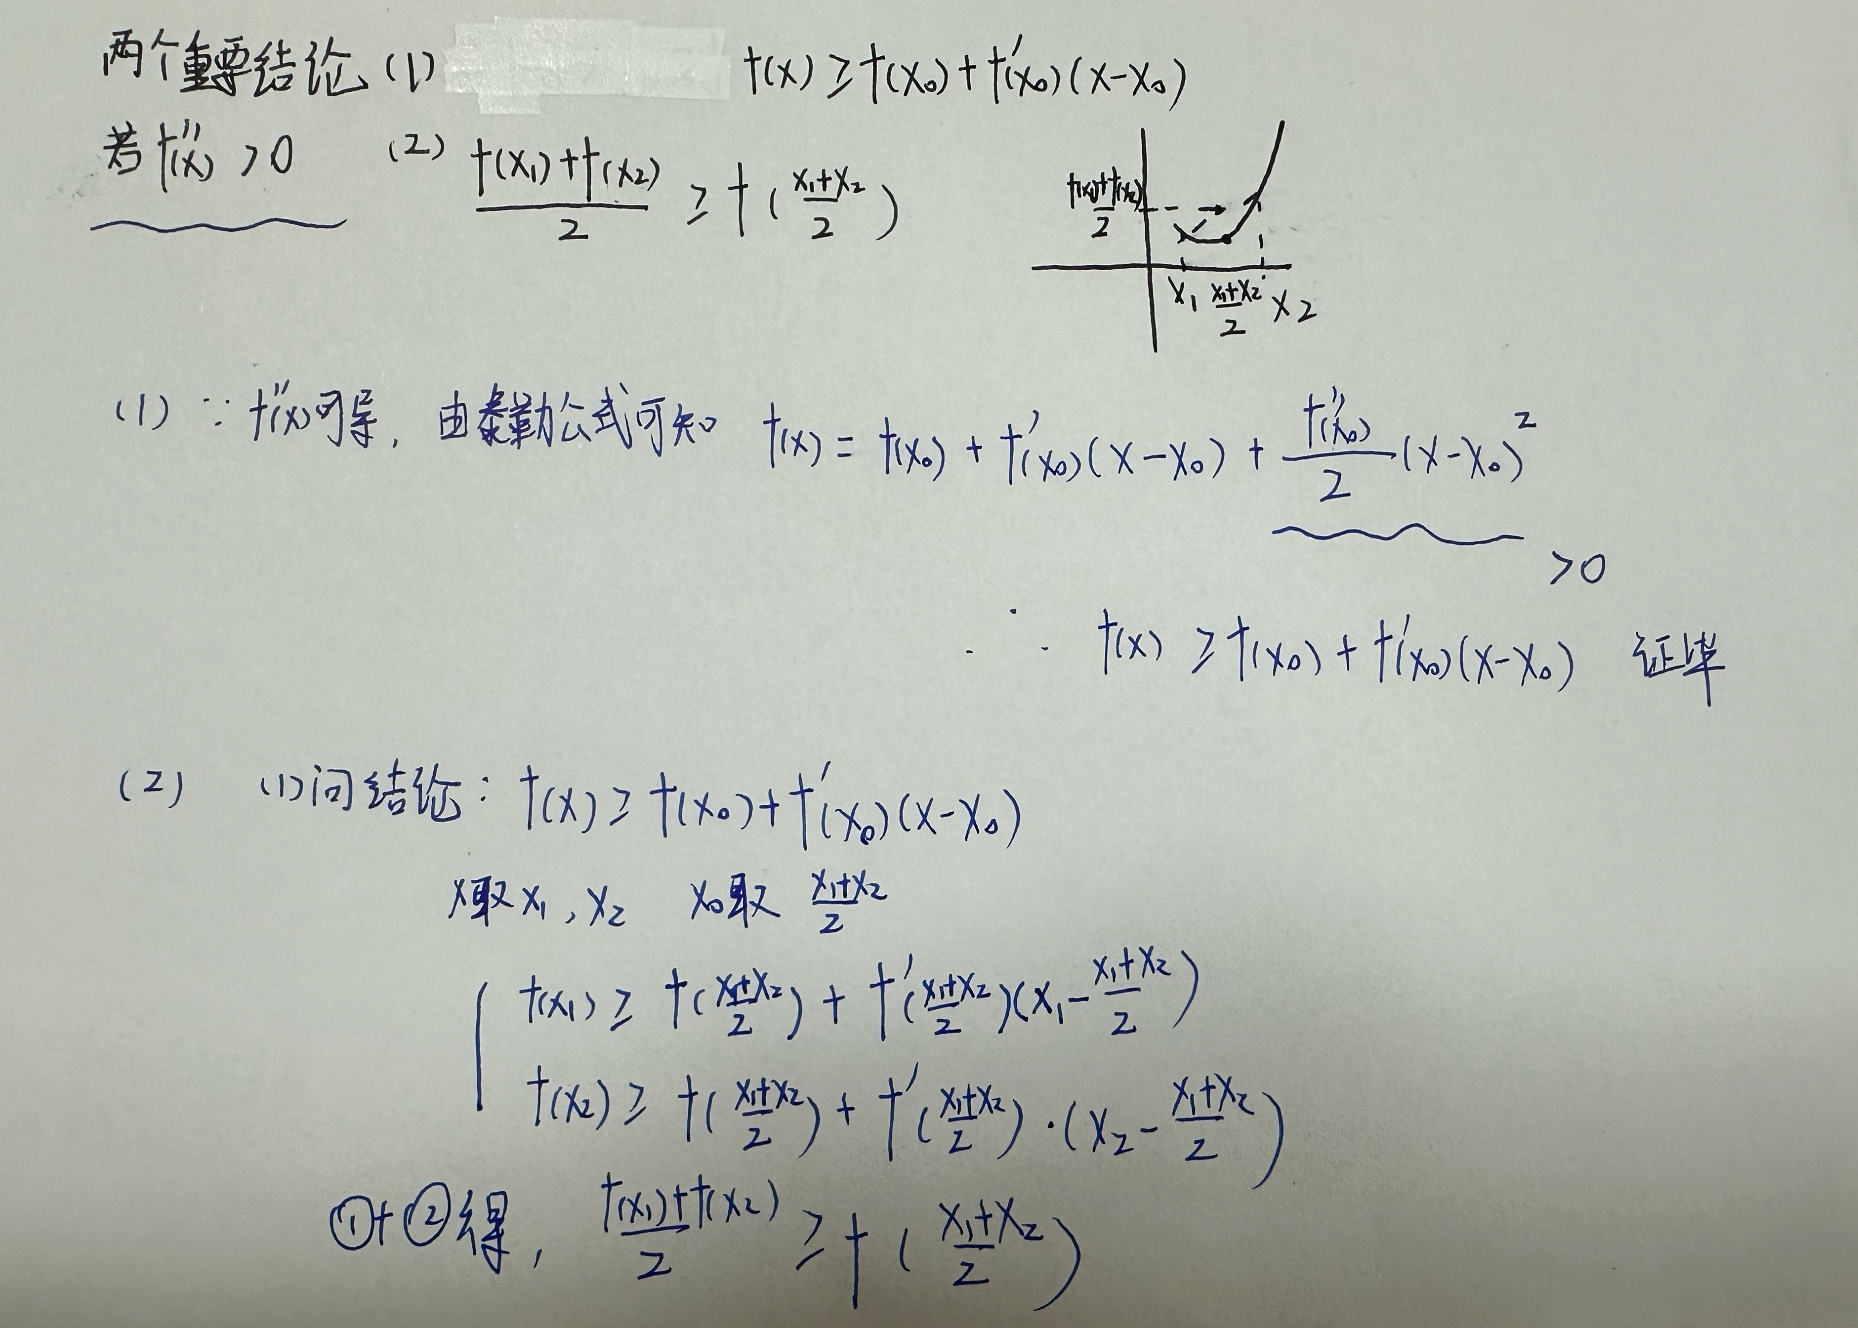 两个重要结论 (1) f(x) ≥ f(x₀) + f'(x₀)(x-x₀)
若 f''(x) >0 (2) \frac{f(x₁)+f(x₂)}{2} ≥ f(\frac{x₁+x₂}{2})
\frac{f(x₁)+f(x₂)}{2}
x₁ \frac{x₁+x₂}{2} x₂
(1) ∵ f''(x)可导, 由泰勒公式可知 f(x) = f(x₀) + f'(x₀)(x-x₀) + \frac{f''(x₀)}{2}(x-x₀)²
>0
∴ f(x) ≥ f(x₀) + f'(x₀)(x-x₀) 证毕
(2) (1)问结论: f(x) ≥ f(x₀) + f'(x₀)(x-x₀)
x取 x₁, x₂ x₀取 \frac{x₁+x₂}{2}
f(x₁) ≥ f(\frac{x₁+x₂}{2}) + f'(\frac{x₁+x₂}{2})(x₁-\frac{x₁+x₂}{2})
f(x₂) ≥ f(\frac{x₁+x₂}{2}) + f'(\frac{x₁+x₂}{2})·(x₂-\frac{x₁+x₂}{2})
①+②得, \frac{f(x₁)+f(x₂)}{2} ≥ f(\frac{x₁+x₂}{2})